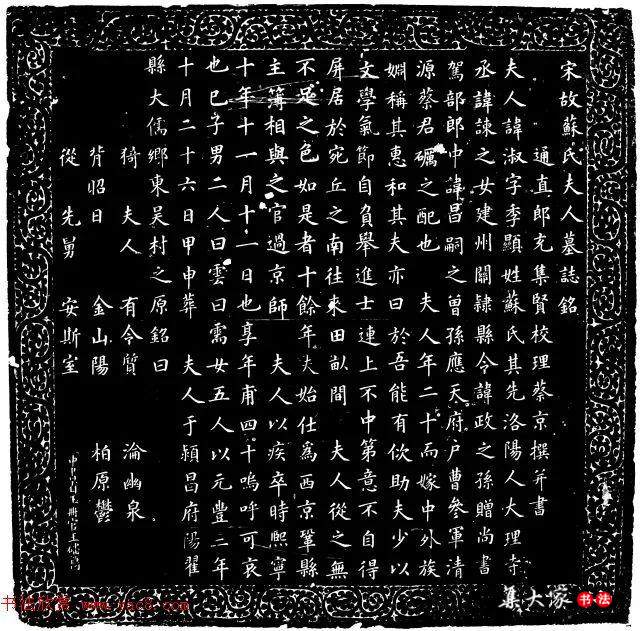 宋故蘇氏夫人墓誌銘
通直郎充集賢校理蔡京撰并書
夫人諱淑字季顯姓蘇氏其先洛陽人大理寺
丞諱諫之女建州關隸縣令諱政之孫贈尚書
駕部郎中諱昌嗣之曾孫應天府户曹參軍清
源蔡君礪之配也 夫人年二十而嫁中外族
婣稱其惠和其夫亦曰於吾能有佽助夫少以
文學氣節自負舉進士連上不中第意不自得
屏居於宛丘之南往來田畝間 夫人從之無
不足之色如是者十餘年夫始仕為西京鞏縣
主簿相與之官過京師 夫人以疾卒時熙寧
十年十一月十一日也享年甫四十嗚呼可哀
也已子男二人曰雲曰需女五人以元豐二年
十月二十六日甲申葬 夫人于潁昌府陽翟
縣大儒鄉東吳村之原銘曰
猗 夫人 有令質 淪幽泉
背昭日 金山陽 柏原鬱
從 先舅 安斯室
集大家 书法
书法欣赏 www.yac8.com